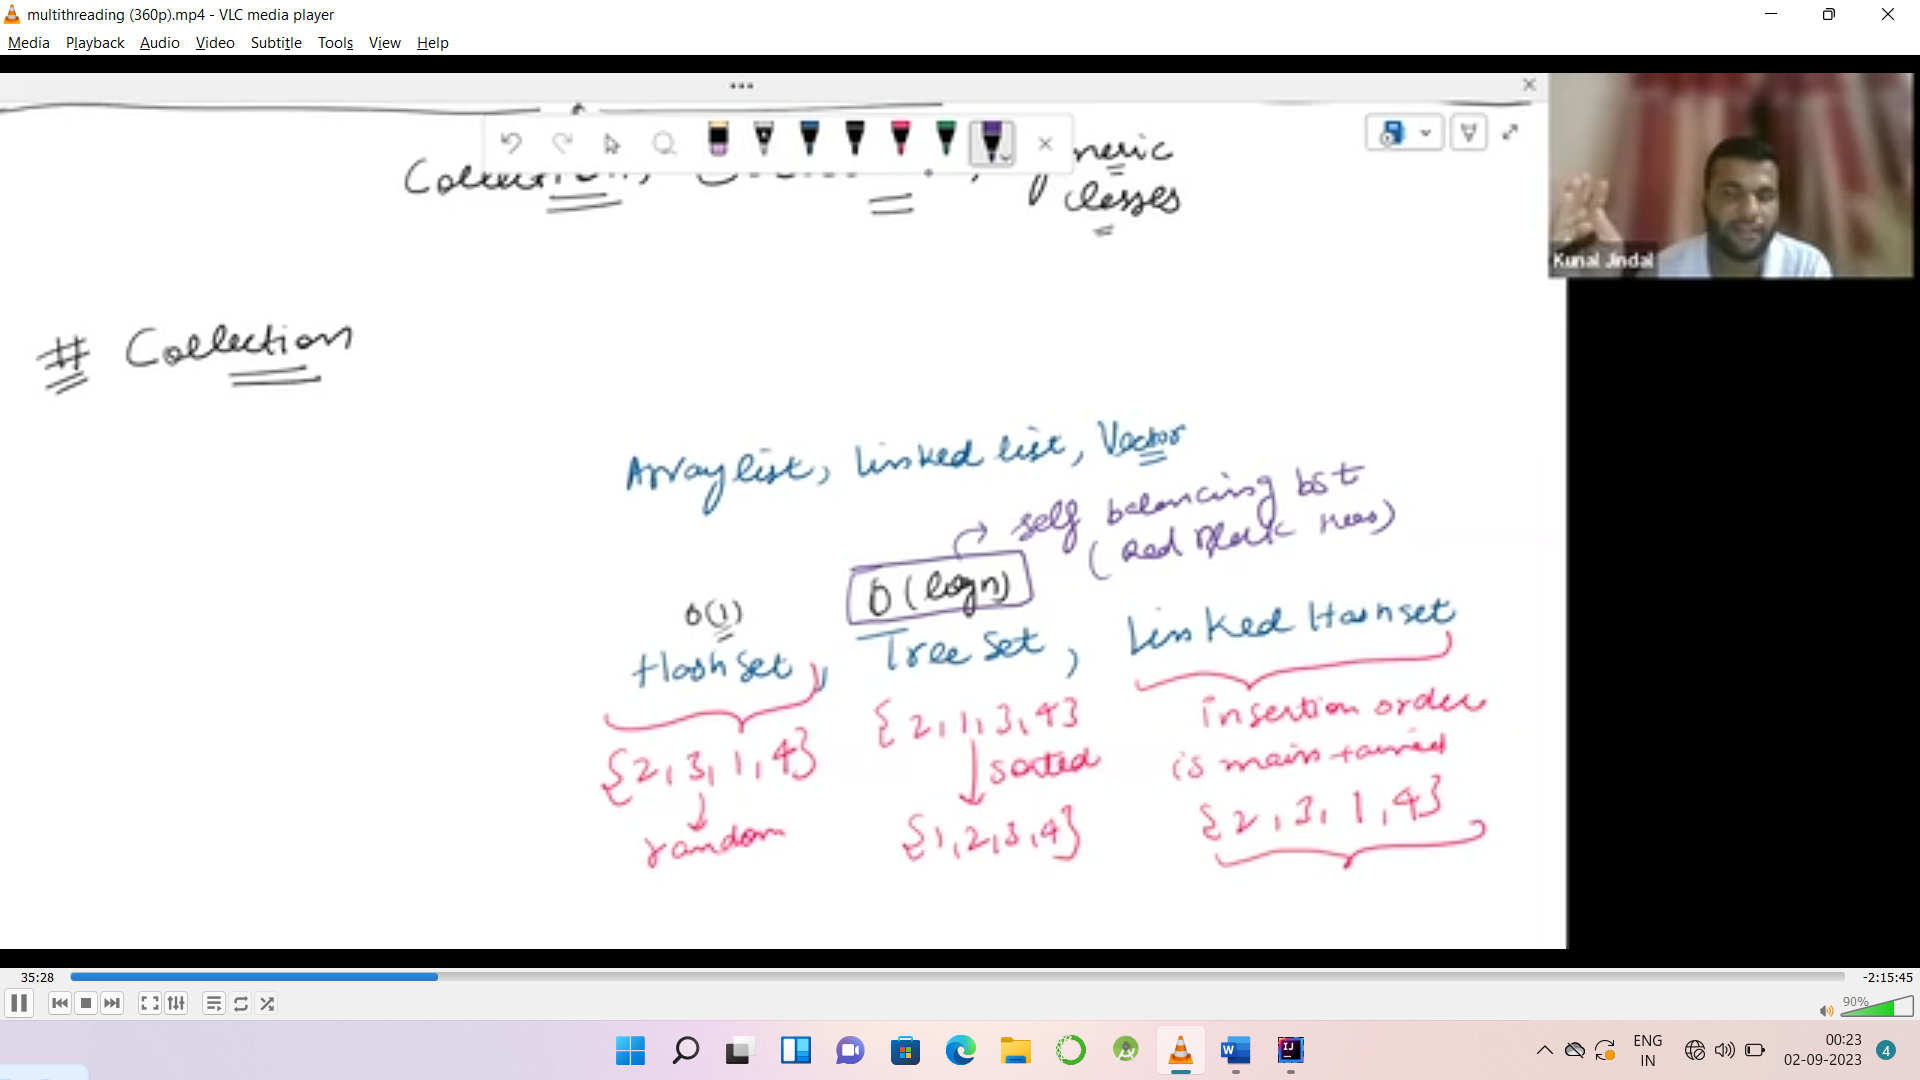 multithreading (360p).mp4 - VLC media player
Media Playback Audio Video Subtitle Tools View Help
neric
classes
Kunal Jindal
# Collection
Arraylist, Linked list, Vector
self balancing bst
(Red Black Trees)
O(logn)
O(1)
HashSet, TreeSet, Linked Hashset
{2,3,1,4}
random
{2,1,3,4}
sorted
{1,2,3,4}
insertion order
is maintained
{2,3,1,4}
35:28
-2:15:45
90%
ENG
IN
00:23
02-09-2023
4